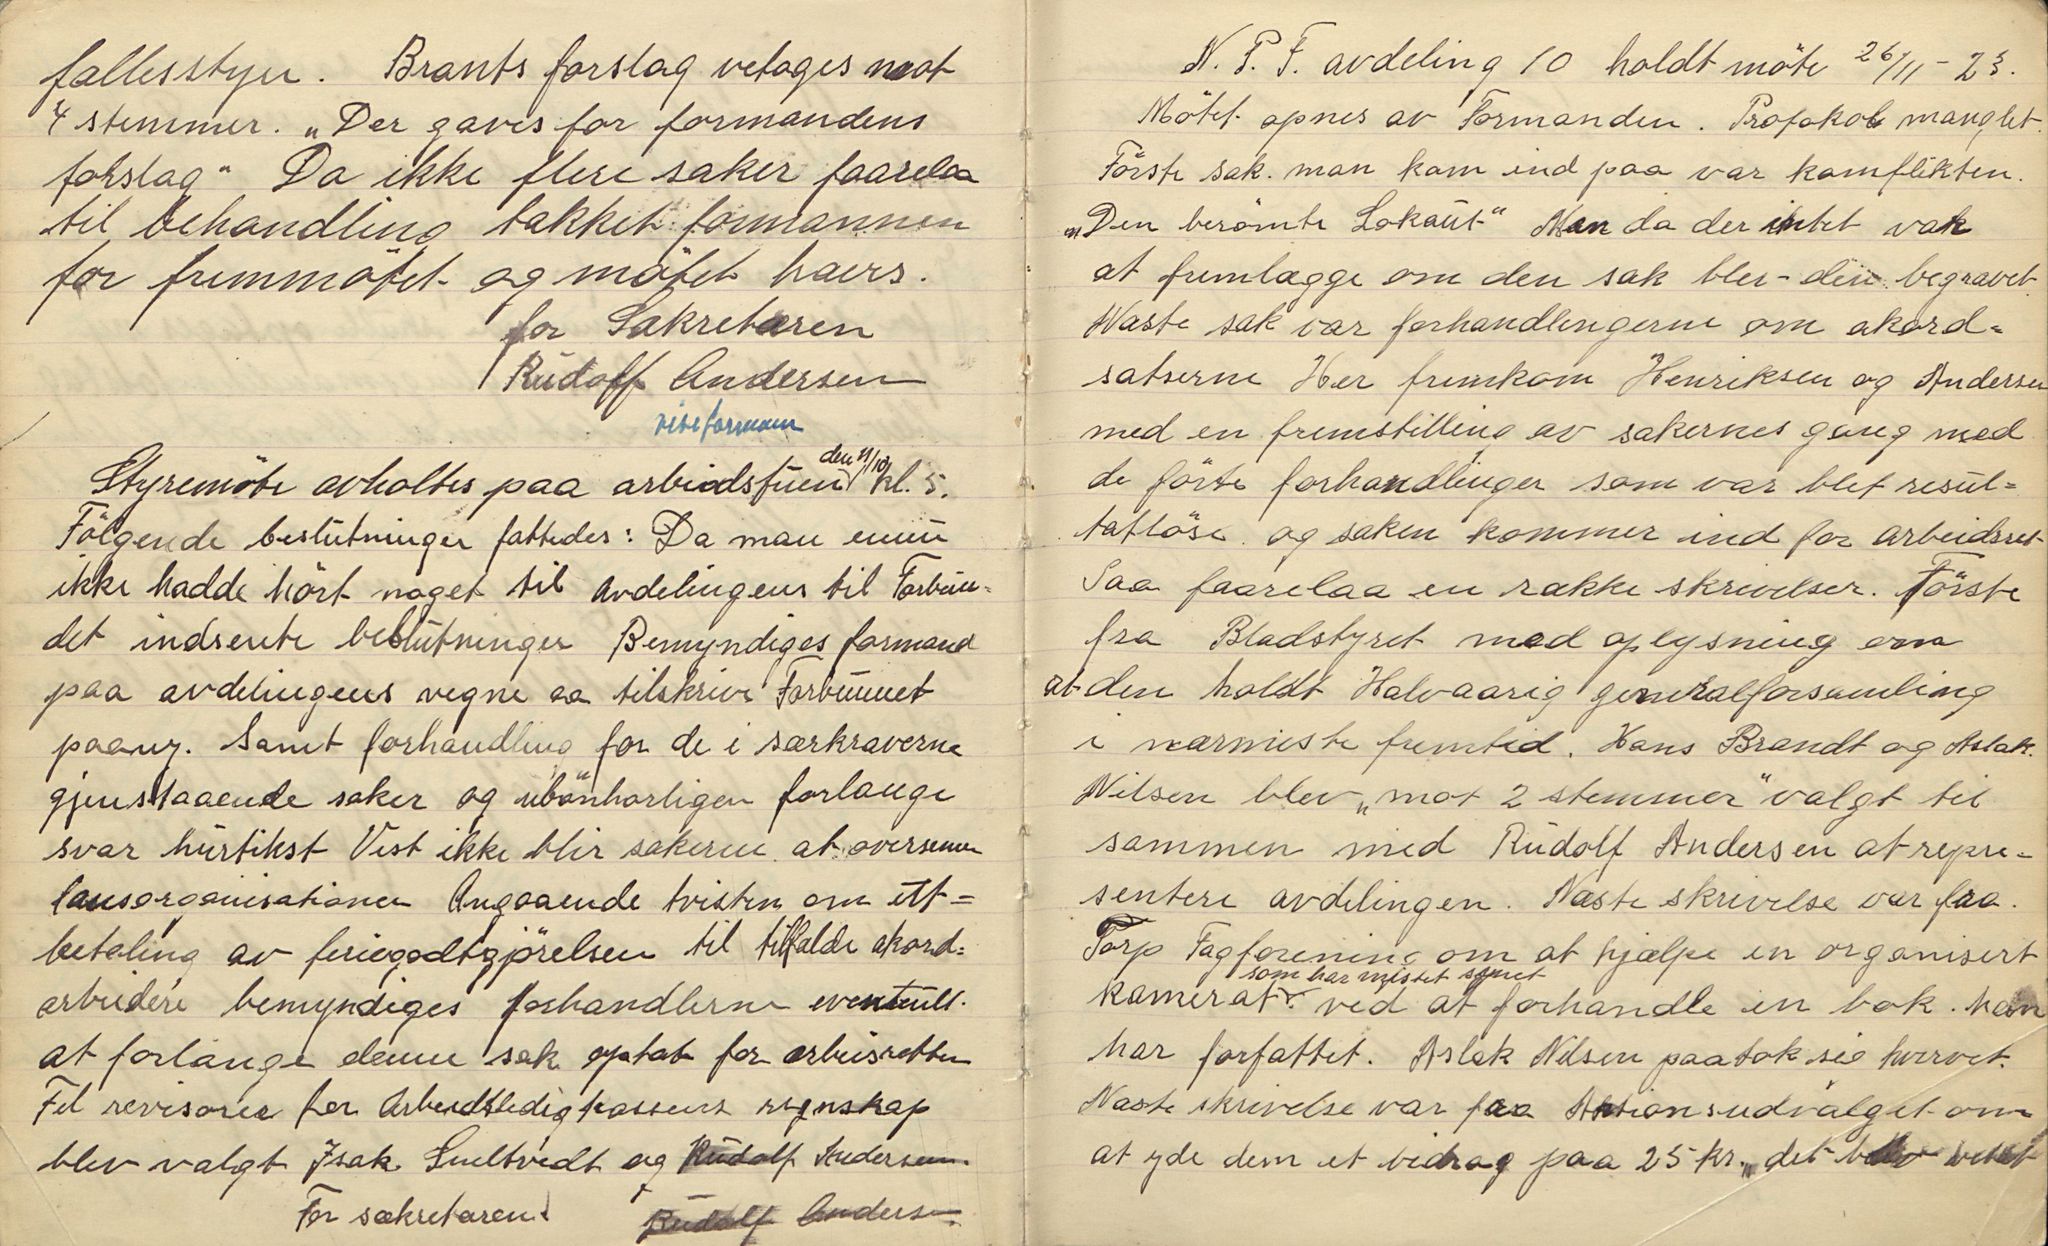 fallesstyre. Brants forslag vetoges mot
4 stemmer. „Der gaves for formandens
forslag" Da ikke flere saker faarelaa
til behandling takket formannen
for fremmötet og mötet hævs.
for Sakretæren
Rudolf Andersen
viseformann
Styremöte avholtes paa arbeidsstuen den 11/10 kl. 5.
Fölgende beslutninger fattedes: Da man ennu
ikke hadde hört noget til avdelingens til Forbun-
det indsente beslutninger Bemyndiges formand
paa avdelingens vegne aa tilskrive Forbunnet
paany. Samt forhandling for de i særkraverne
gjenstaaende saker og ubönhorligen forlange
svar hurtikst Vist ikke blir sakerne at oversenne
lansorganisationen Angaaende tvisten om ut=
betaling av feriegodtgjörelsen til tilfalde akord=
arbeidere bemyndiges forhandlerne eventuelt.
at forlange denne sak optat for arbeisretten
Til revisorer for Arbeidsledigkassens regnskap
blev valgt Isak Sneltvedt og Rudolf Andersen.
For sækretæren. Rudolf Andersen.
N. P. F. avdeling 10 holdt möte 26/11 - 23.
Mötet opnes av Formanden. Protokol manglet.
Förste sak. man kom ind paa var komflikten.
„Den berömte Lokaut" Men da der intet var
at fremlægge om den sak blev den begravet.
Næste sak var forhandlingerne om akord=
satserne Her fremkom Henriksen og Andersen
med en fremstilling av sakernes gang med
de förte forhandlinger som var blet resul=
tatlöse og saken kommer ind for arbeidsret
Saa faarelaa en række skrivelser. Förste
fra Bladstyret med oplysning om
at den holdt Halvaarig generalforsamling
i nærmeste fremtid. Hans Brandt og Aslak.
Nilsen blev „mot 2 stemmer" valgt til
sammen med Rudolf Andersen at repre-
sentere avdelingen. Næste skrivelse var fra
Torp Fagforening om at hjælpe en organisert
kamerat som har mistet synet ved at forhandle en bok. han
har forfattet. Aslak Nilsen paatok sig hvervet.
Næste skrivelse var fra Aktionsudvalget om
at yde dem et bidrag paa 25 kr. „det blev vetat